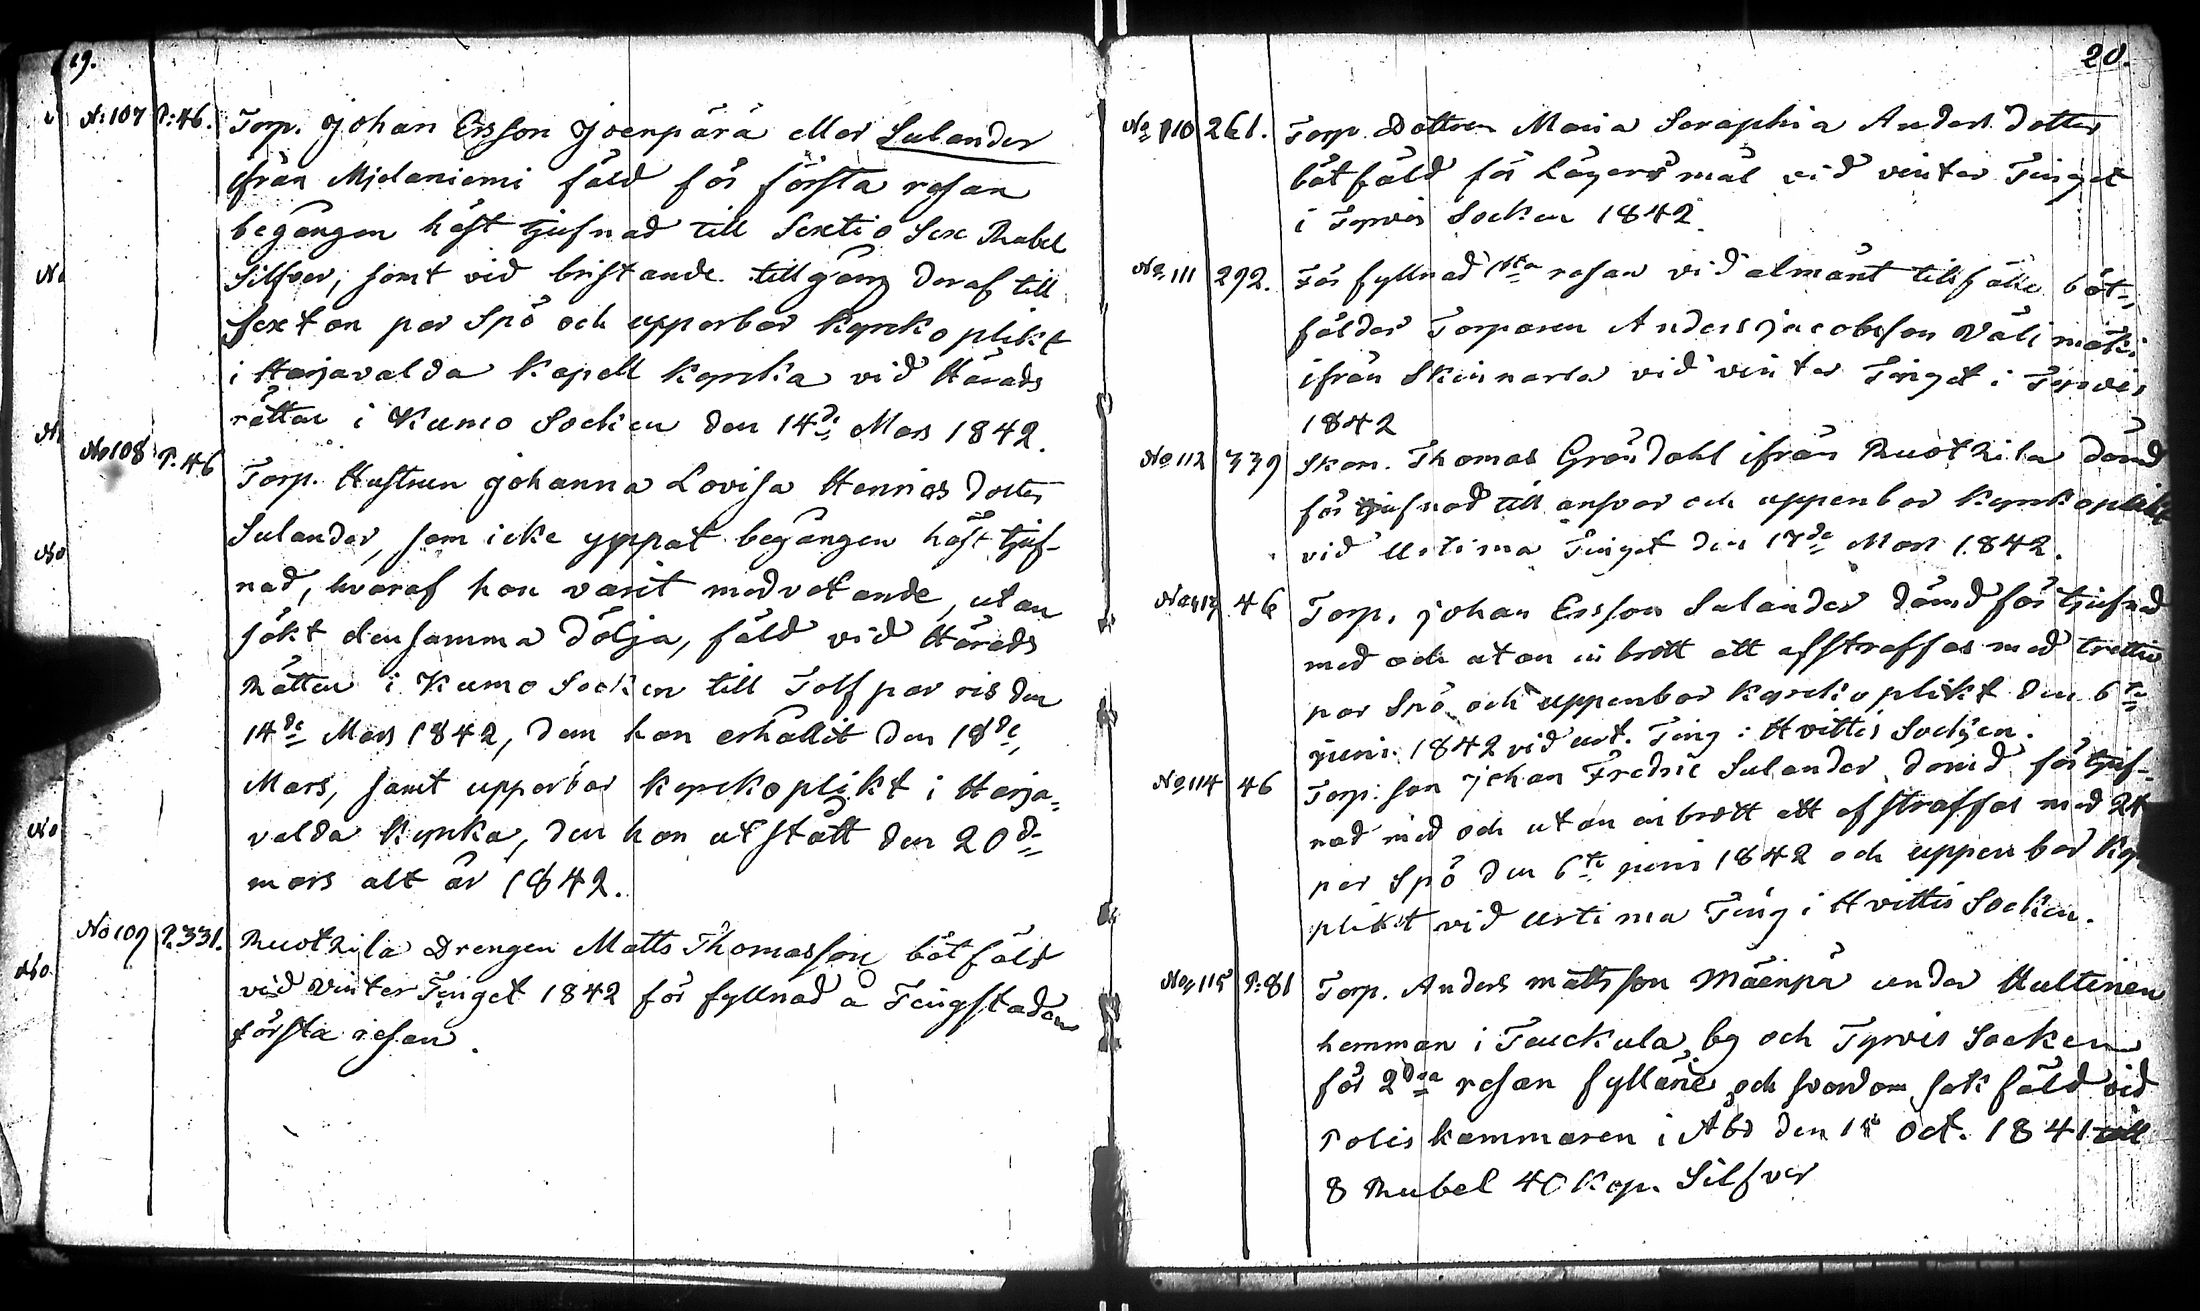 19.
N:107 P:46. Torp. Johan Ersson Joenpärä eller Sulander
ifrån Mjelaniemi fäld för första resan
begången häst tjufnad till Sextio Sex Rubel
Silfver, samt vid bristande tillgång deraf till
Sexton par Spö och upperbar kyrko plikt
i Harjavalda Kapell kyrcka vid Härads
rätten i Kumo Socken den 14de Mars 1842.
No 108 P.46 Torp. Hustrun Johanna Lovisa Henrics dotter
Sulander, som icke yppat begången häst tjuf-
nad, hvaraf hon varit medvetande, utan
sökt densamma dölja, fäld vid Härads
Rätten i Kumo Socken till Tolf par ris den
14de Mars 1842, dem hon erhållit den 18de
Mars, samt upperbar kyrkoplikt i Harja=
valda Kyrka, den hon utstått den 20de
mars alt år 1842.
No 109 P.331. Ruothila Drengen Matts Thomasson böt fäld
vid Vinter Tinget 1842 för fyllnad å Tingstaden
första resan.
20.
No 110 261. Torp. Dottren Maria Seraphia Anders dotter
böt fäld för Lägersmål vid vinter Tinget
i Tyrvis Socken 1842.
No 111 292. För fyllnad 1sta resan vid almänt tillfälle böt=
fäldes Torparen Anders Jacobsson Välimäki
ifrån Skinnarla vid vinter Tinget i Tyrvis
1842
No 112 339 Skom. Thomas Gröndahl ifrån Ruothila dömd
för tjufnad till ansvar och uppenbar Kyrkoplikt
vid Urtima Tinget den 17de Mars 1842.
No 113 46 Torp. Johan Ersson Sulander dömd för tjufnad
med och utan inbrott att afstraffas med trettio
par Spö och uppenbar kyrko plikt den 6te
juni 1842 vid urt. Ting i Hvittis Socken.
No 114 46 Torp. son Johan Fredric Sulander dömd för tjuf-
nad med och utan inbrott att afstraffas med 24
par Spö den 6te juni 1842 och uppenbar Kyr
plikt vid Urtima Ting i Hvittis Socken.
No 115 P:81 Torp. Anders Mattsson Mäenpä under Hultinen
hemman i Tauckula by och Tyrvis Socken
för 2dra resan fylleri och svordom sak fäld vid
Polis kammaren i Åbo den 15 Oct. 1841 till
8 Rubel 40 Kop. Silfver